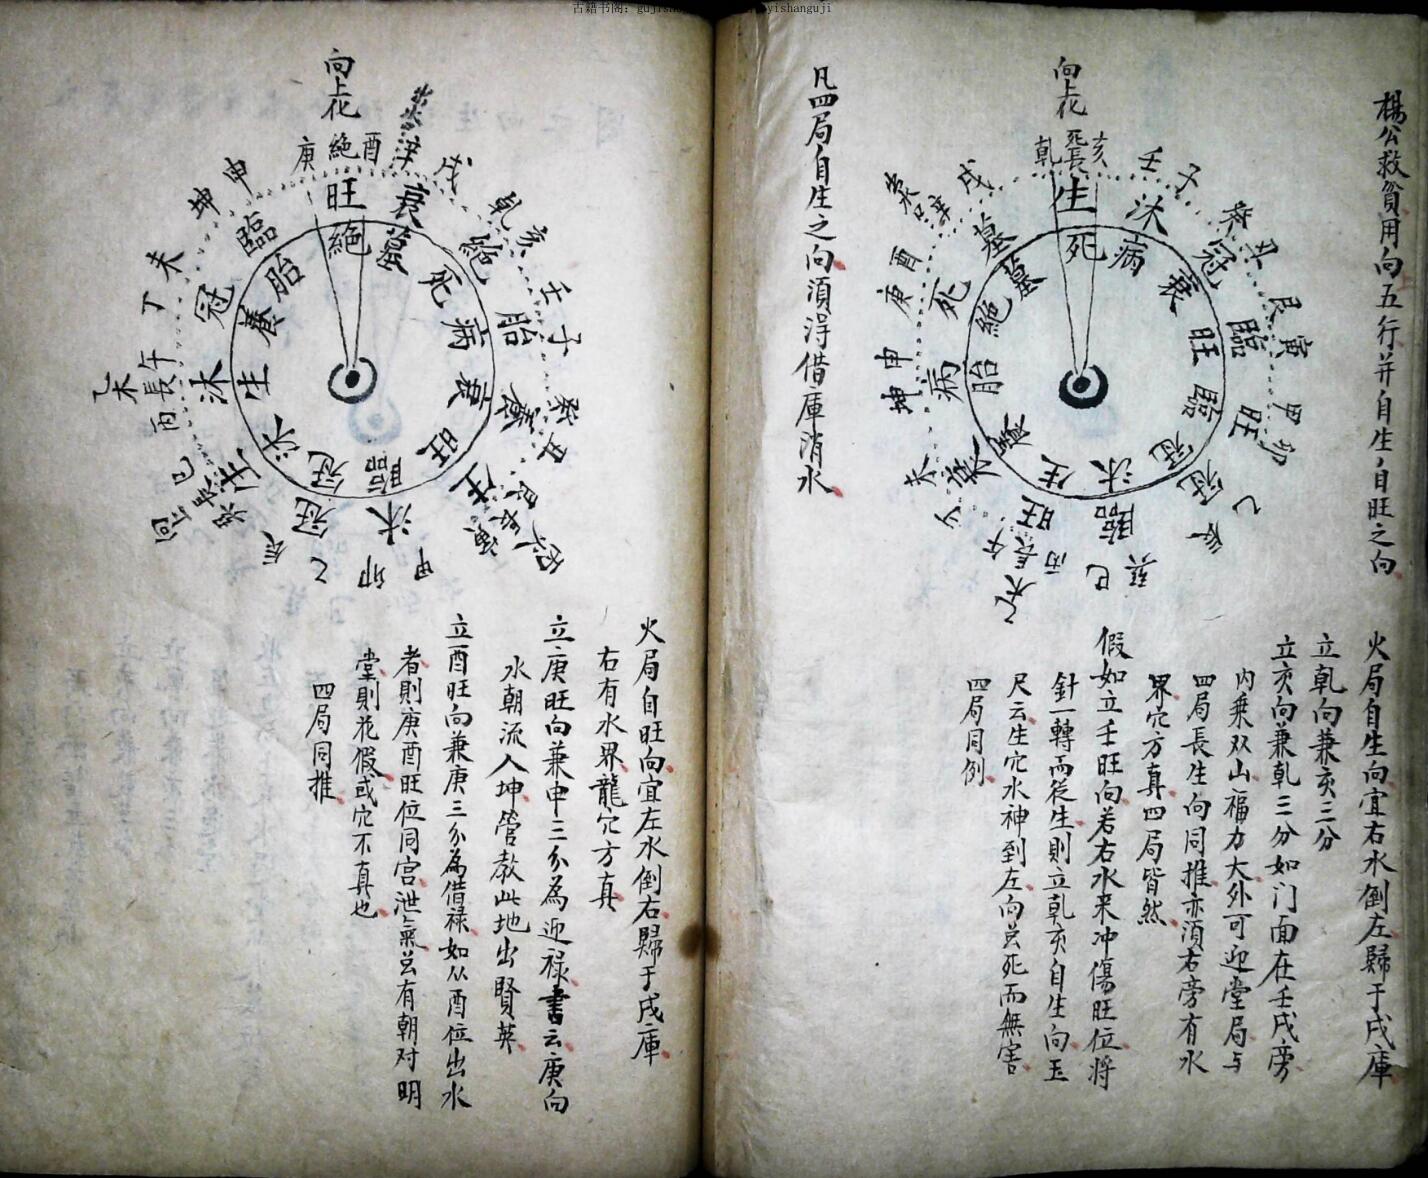 楊公救貧用向五行并自生自旺之向
火局自生向宜右水倒左歸于戌庫
立乹向兼亥三分
立亥向兼乹三分如门面在壬戌旁
内乗双山福力大外可迎堂局与
四局長生向同推亦須右旁有水
界穴方真四局皆然
假如立壬旺向若右水来冲傷旺位将
針一轉而従生則立乹亥自生向玉
尺云生穴水神到左向芸死而無害
四局同例
向上花
乹 長 亥
壬
子
癸
丑
艮
寅
甲
卯
乙
巳
丙
午
未
坤
申
庚
酉
辛
戌
生
沐
冠
臨
旺
冠
臨
旺
病
死
墓
死
病
衰
旺
臨
冠
沐
生
養
胎
絕
墓
凡四局自生之向須得借庫消水
向上花
庚 絕 酉
辛
戌
乹
亥
壬
子
癸
丑
甲
卯
乙
辰
巳
丙
長
午
乙木
丁
未
坤
申
旺
衰
絕
胎
養
生
沐
冠
生
沐
冠
臨
絕
墓
死
病
衰
旺
臨
冠
沐
生
養
胎
火局自旺向宜左水倒右歸于戌庫
右有水界龍穴方真
立庚旺向兼申三分為迎禄書云庚向
水朝流入坤管教此地出賢英
立酉旺向兼庚三分為借禄如从酉位出水
者則庚酉旺位同宫泄氣芸有朝对明
堂則花假或穴不真也
四局同推